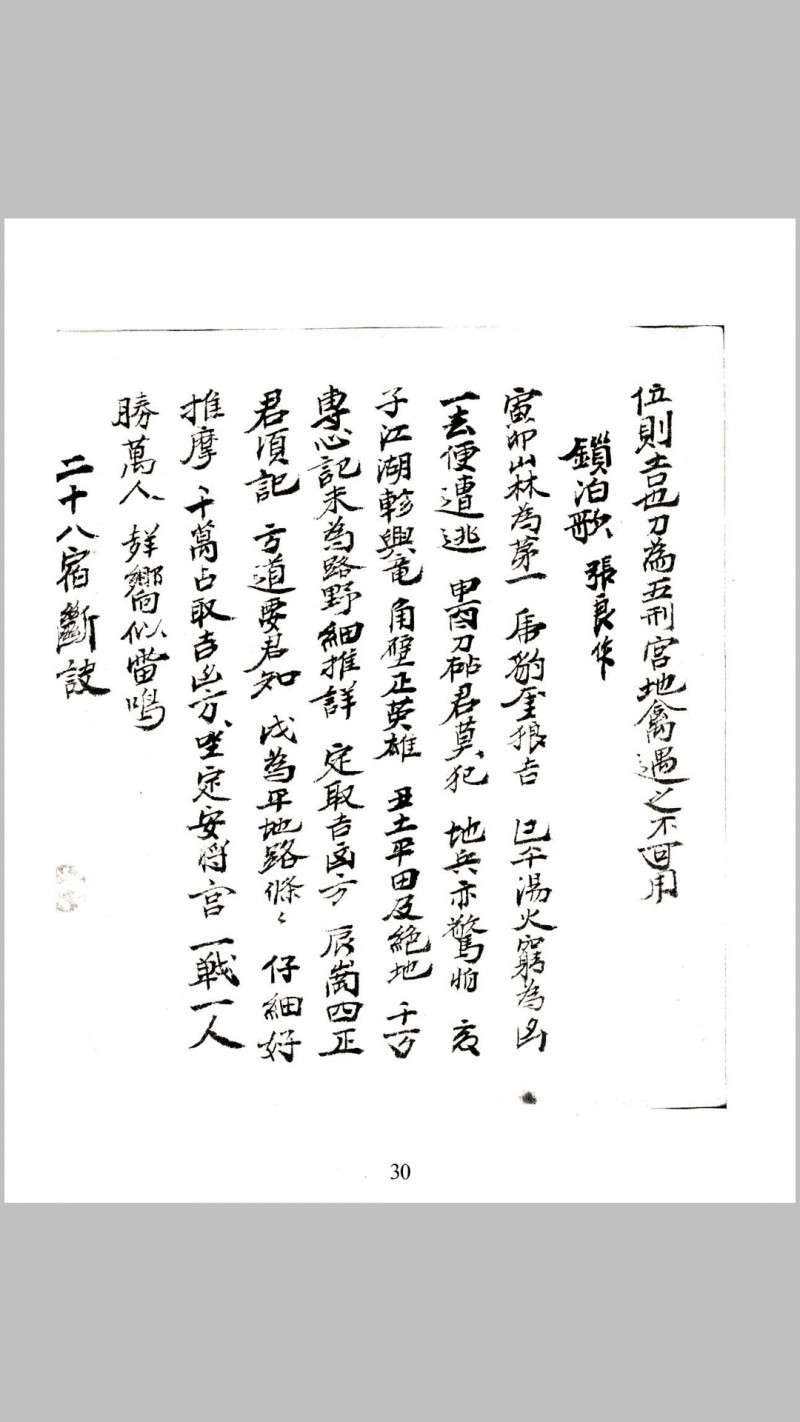 位則吉也刀為五刑宮地禽遇之不可用
鎖泊歌 張良作
寅卯山林為第一 虎豹豺狼吉 巳午湯火窮為凶
一去便遭逃 申酉刀砧君莫犯 地兵亦驚怕 亥
子江湖軫與竜 角壁正英雄 丑土平田及絶地 千万
專心記 未為路野細推詳 定取吉凶方 辰崗四正
君須記 方道要君知 戌為平地路條〻 仔細好
推摩 千萬占取吉凶方 坐定安將宮 一戦一人
勝萬人 声響似雷鳴
二十八宿斷訣
30